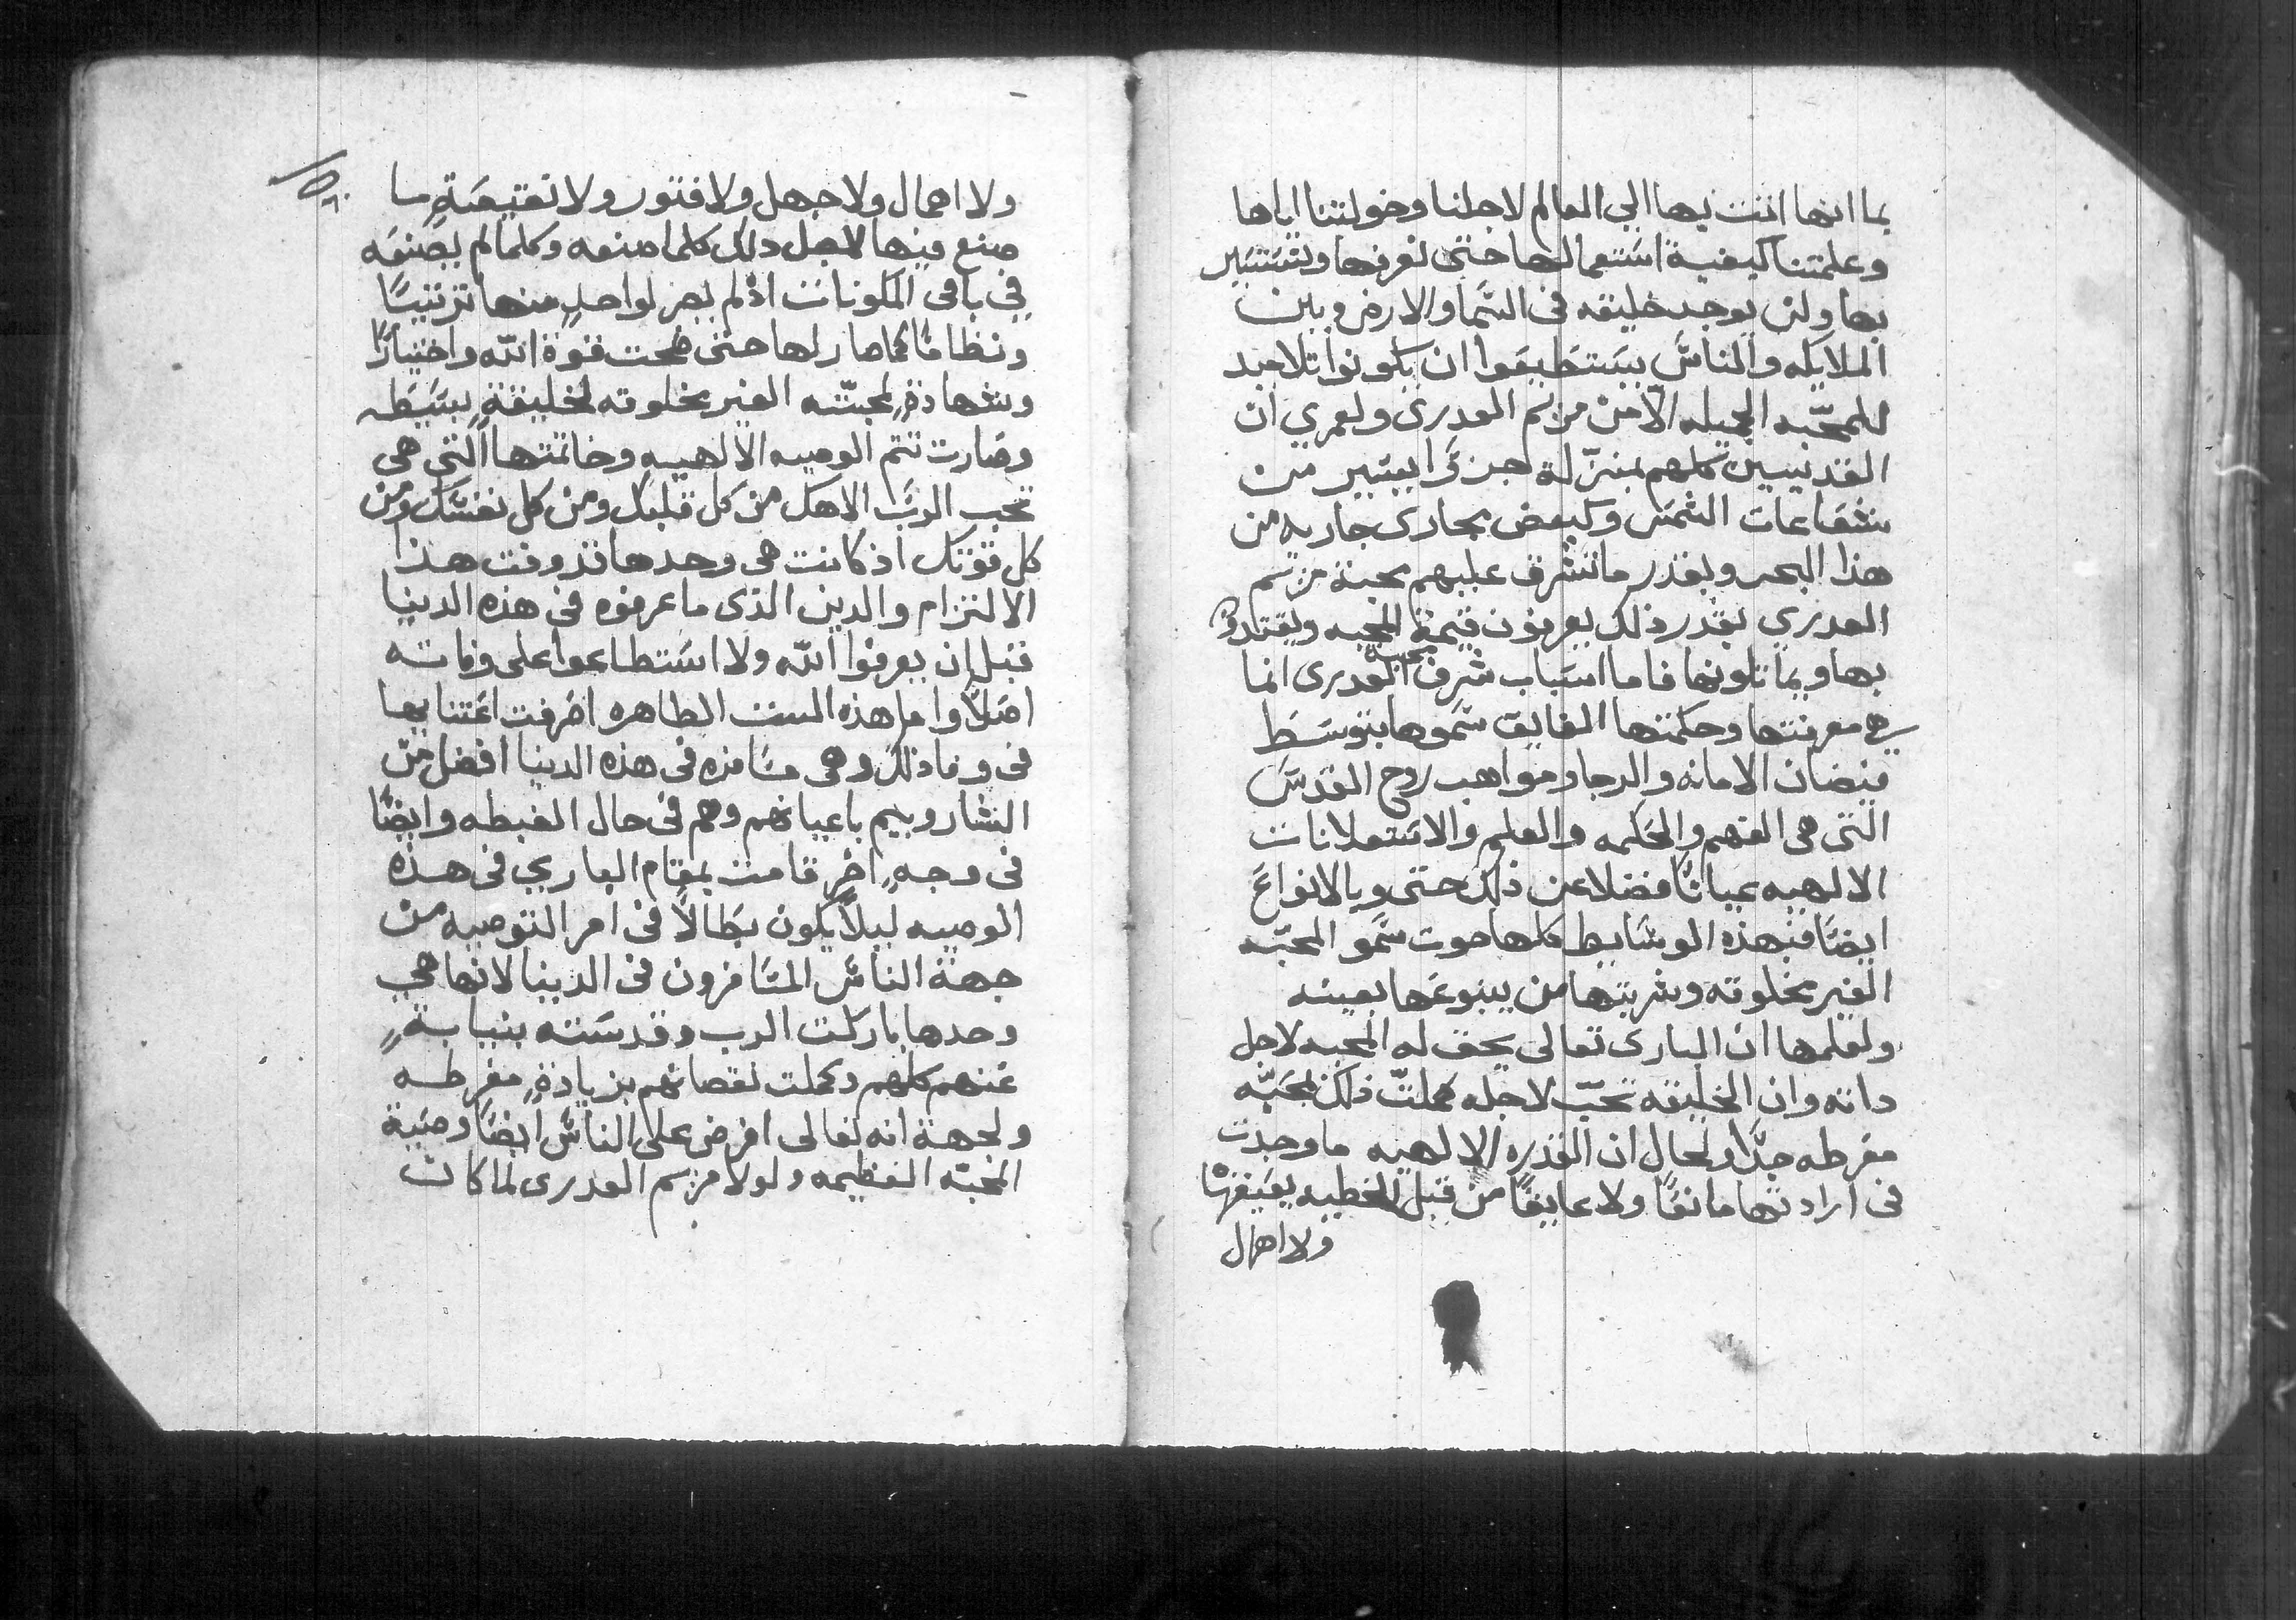 بما انها اتت بها الي العالم لاجلنا وخولتنا اياها
وعلمتنا كيفية استعمالها حتى نعرفها ونستسير
بها ولن يوجد خليقه في السما والارض وبين
الملايكه والناس يستطيعوا ان يكونوا تلاميد
للمحبّه الجميله الّا من مريم العدرى ولعمري ان
القديسين كلهم بمنزلة جزءًا يسير من
شعاعات الشمس وكبعض مجارى جاريه من
هذا البحر وبقدر ما تشرق عليهم محبة مريم
العدري بقدر ذلك يعرفون قيمة المحبه ويقتدوا
بها ويماتلونها فاما اسباب شرف محبة العدرى انما
هي معرفتها وحكمتها الفايق سموها بتوسط
فيضان الامانه والرجا ومواهب روح القدس
التى هى الفهم والحكمه والعلم والاستعلانات
الالهيه عيانًا فضلا عن ذلك حتى وبالانواع
ايضًا فبهذه الوسايط كلها حوت سمو المحبّه
الغير مخلوقه وشربتها من ينبوعها بعينه
ولعلمها ان البارى تعالى يحق له المحبه لاجل
داته وان الخليقه تحبّ لاجله كملت ذلك بمحبّه
مفرطه جدًا ولحال ان القدره الالهيه ما وجدت
فى ارادتها مانعًا ولا عايقًا من قبل الخطيه يعيقها
ولا اهمال
١٥٠
ولا اهمال ولا جهل ولا فتور ولا نقيصَةٍ ما
صنع فيها لاجل دلك كلما صنعه وكلما لم يصنعه
في باقى المكونات اذ لم يصر لواحدٍ منها ترتيبًا
ونظامًا كما صار لها حتى ضحت قوة الله واختيارًا
وشهادةٍ لمحبّته الغير مخلوقه لخليقةٍ بسيطه
وصارت تتم الوصيه الالهيه وخاتمتها التى هى
تحب الربّ الاهك من كل قلبك ومن كل نفسك ومن
كل قوتك اذ كانت هى وحدها قد وفت هذا
الالتزام والدين الذى ما عرفوه فى هذه الدينا
قبل ان يعرفوا الله ولا استطاعوا على وفاته
اصلًا واما هذه الست الطاهره اصرفت اعتنايها
فى وفا ذلك وهى مسافره فى هذه الدينا افضل من
الشاروبيم باعيانهم وهم فى حال الغبطه وايضًا
فى وجهٍ اخرٍ قامت بمقام الباري فى هذه
الوصيه ليلًا يكون بطالًا فى امر التوصيه من
جهة الناس المسافرون فى الدينا لانها هى
وحدها باركت الرب وقدسته بنيابةٍ
عنهم كلهم وكملت نقصانهم بزيادةٍ مفرطه
ولجهة انه تعالى افرض على الناس ايضًا وصية
المحبّه العظيمه ولولا مريم العدرى لما كانت